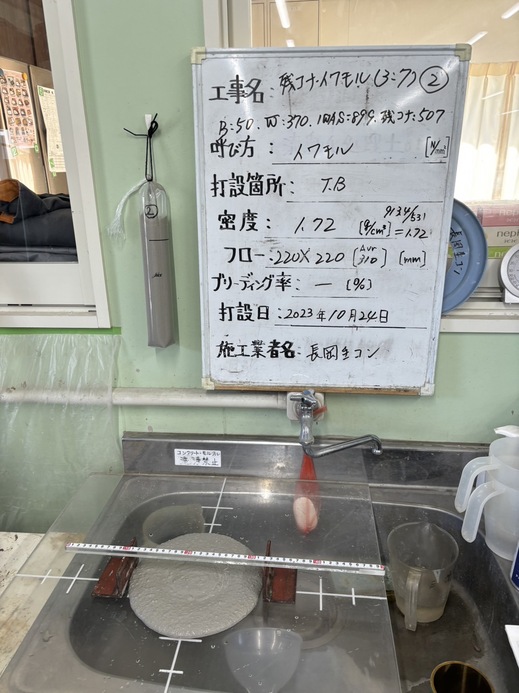 工事名: 残コナ・イワモル(3:7) ②
B=50. W=370. IWAS=899. 残コナ=507
呼び方: イワモル [N/mm²]
打設箇所: T.B
密度: 1.72 [g/cm³] = 1.72
フロー: 220×220 [mm]
ブリーディング率: — [%]
打設日: 2023年10月24日
施工業者名: 長岡生コン
長岡生コン
コンクリート・モルタル
洗浄禁止